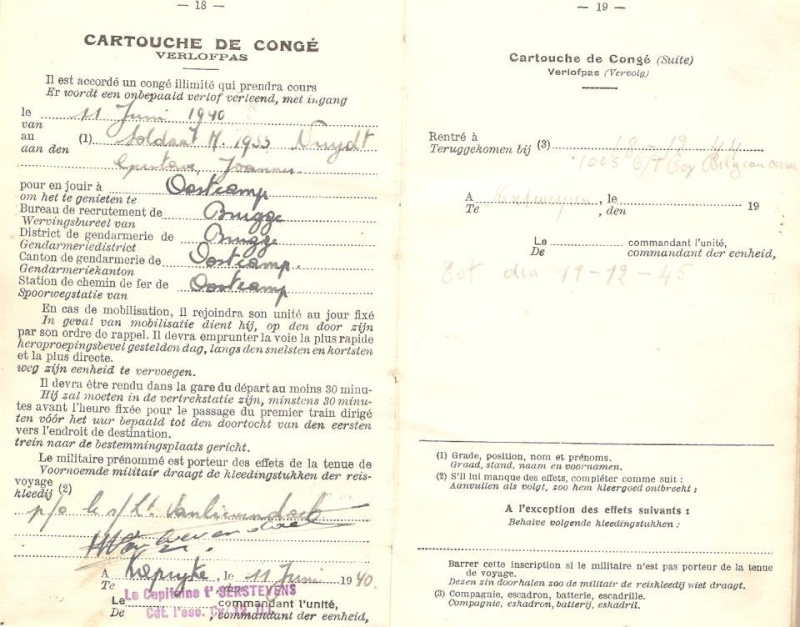 — 18 —
CARTOUCHE DE CONGÉ
VERLOFPAS
Il est accordé un congé illimité qui prendra cours
Er wordt een onbepaald verlof verleend, met ingang
le 11 Juni 1940
van
au (1) Soldaat M. 1933 Nuydt
aan den
Gustave, Joannes
pour en jouir à Oostcamp
om het te genieten te
Bureau de recrutement de Brugge
Wervingsbureel van
District de gendarmerie de Brugge
Gendarmeriedistrict
Canton de gendarmerie de Oostcamp.
Gendarmeriekanton
Station de chemin de fer de Oostcamp
Spoorwegstatie van
En cas de mobilisation, il rejoindra son unité au jour fixé
In geval van mobilisatie dient hij, op den door zijn
par son ordre de rappel. Il devra emprunter la voie la plus rapide
heroproepingsbevel gestelden dag, langs den snelsten en kortsten
et la plus directe.
weg zijn eenheid te vervoegen.
Il devra être rendu dans la gare du départ au moins 30 minu-
Hij zal moeten in de vertrekstatie zijn, minstens 30 minu-
tes avant l'heure fixée pour le passage du premier train dirigé
ten vóór het uur bepaald tot den doortocht van den eersten
vers l'endroit de destination.
trein naar de bestemmingsplaats gericht.
Le militaire prénommé est porteur des effets de la tenue de
Voornoemde militair draagt de kleedingstukken der reis-
voyage (2)
kleedij
p/o le s/Lt.
A , le 11 Juni 1940.
Te den
Le Capitaine t' SERSTEVENS
Le commandant l'unité,
De , commandant der eenheid,
— 19 —
Cartouche de Congé (Suite)
Verlofpas (Vervolg)
Rentré à (3) 18 - 12 - 44
Teruggekomen bij
1005 Belgian
A , le 19
Te , den
Le commandant l'unité,
De commandant der eenheid,
Tot den 11-12-45
(1) Grade, position, nom et prénoms.
Graad, stand, naam en voornamen.
(2) S'il lui manque des effets, compléter comme suit :
Aanvullen als volgt, zoo hem kleergoed ontbreekt ;
A l'exception des effets suivants :
Behalve volgende kleedingstukken :
Barrer cette inscription si le militaire n'est pas porteur de la tenue
de voyage.
Dezen zin doorhalen zoo de militair de reiskleedij niet draagt.
(3) Compagnie, escadron, batterie, escadrille.
Compagnie, eskadron, batterij, eskadril.